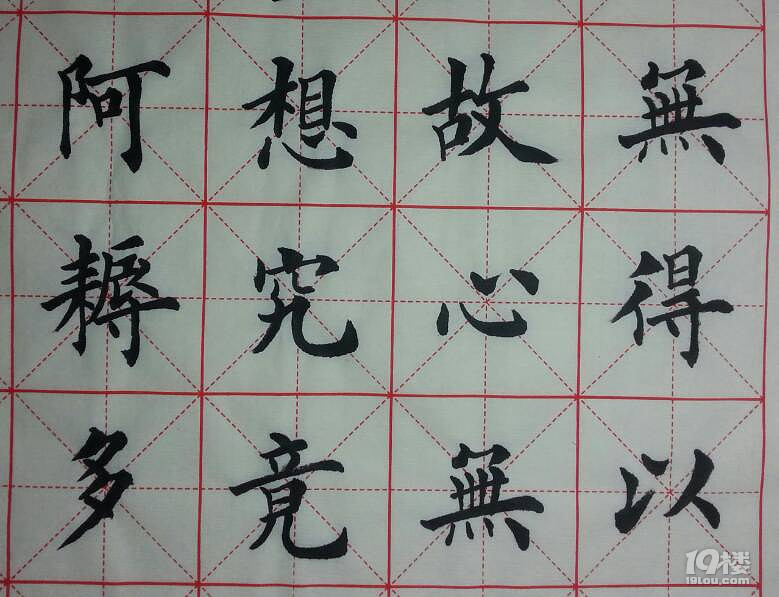 無得以
故心無
想究竟
阿耨多
19楼
19lou.com